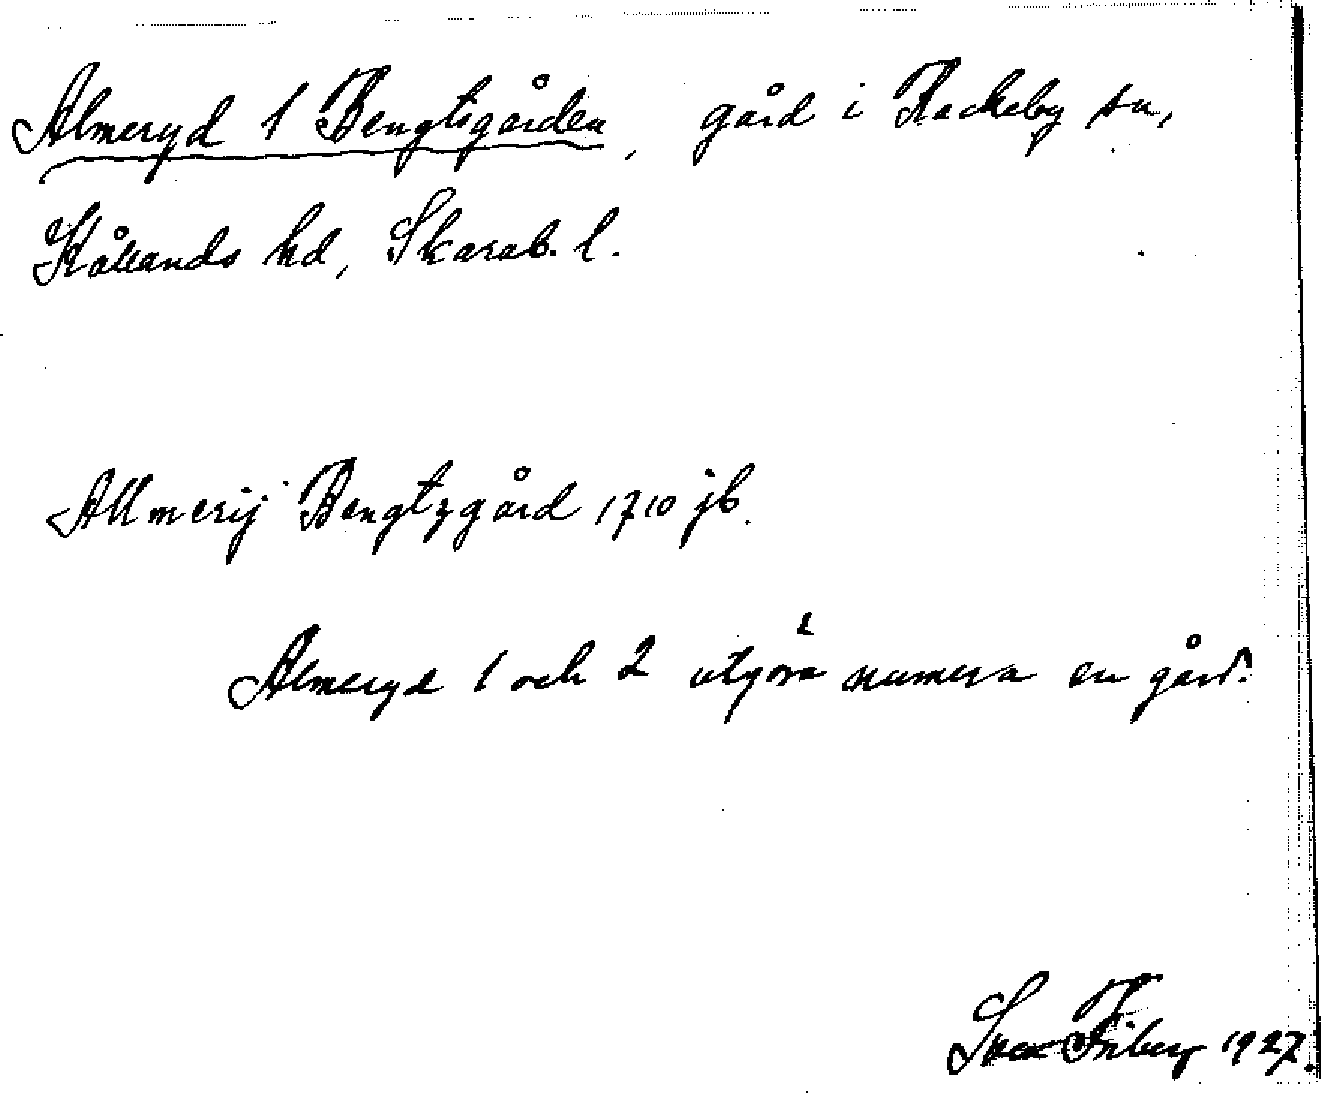 Almeryd 1 Bengtsgården, gård i Rackeby sn,
Kållands hd, Skarab. l.
Allmerij Bengtzgård 1710 jb.
Almeryd 1 och 2 utgöra numera en gård.
Sven Friberg 1927.